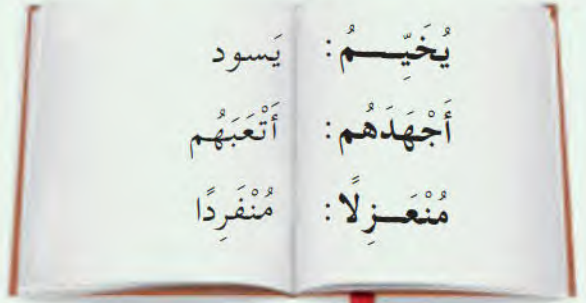 يُخَيِّــــمُ : يَسود
أَجْهَدَهُم : أَتْعَبَهُم
مُنْعَــزِلًا : مُنْفَرِدًا